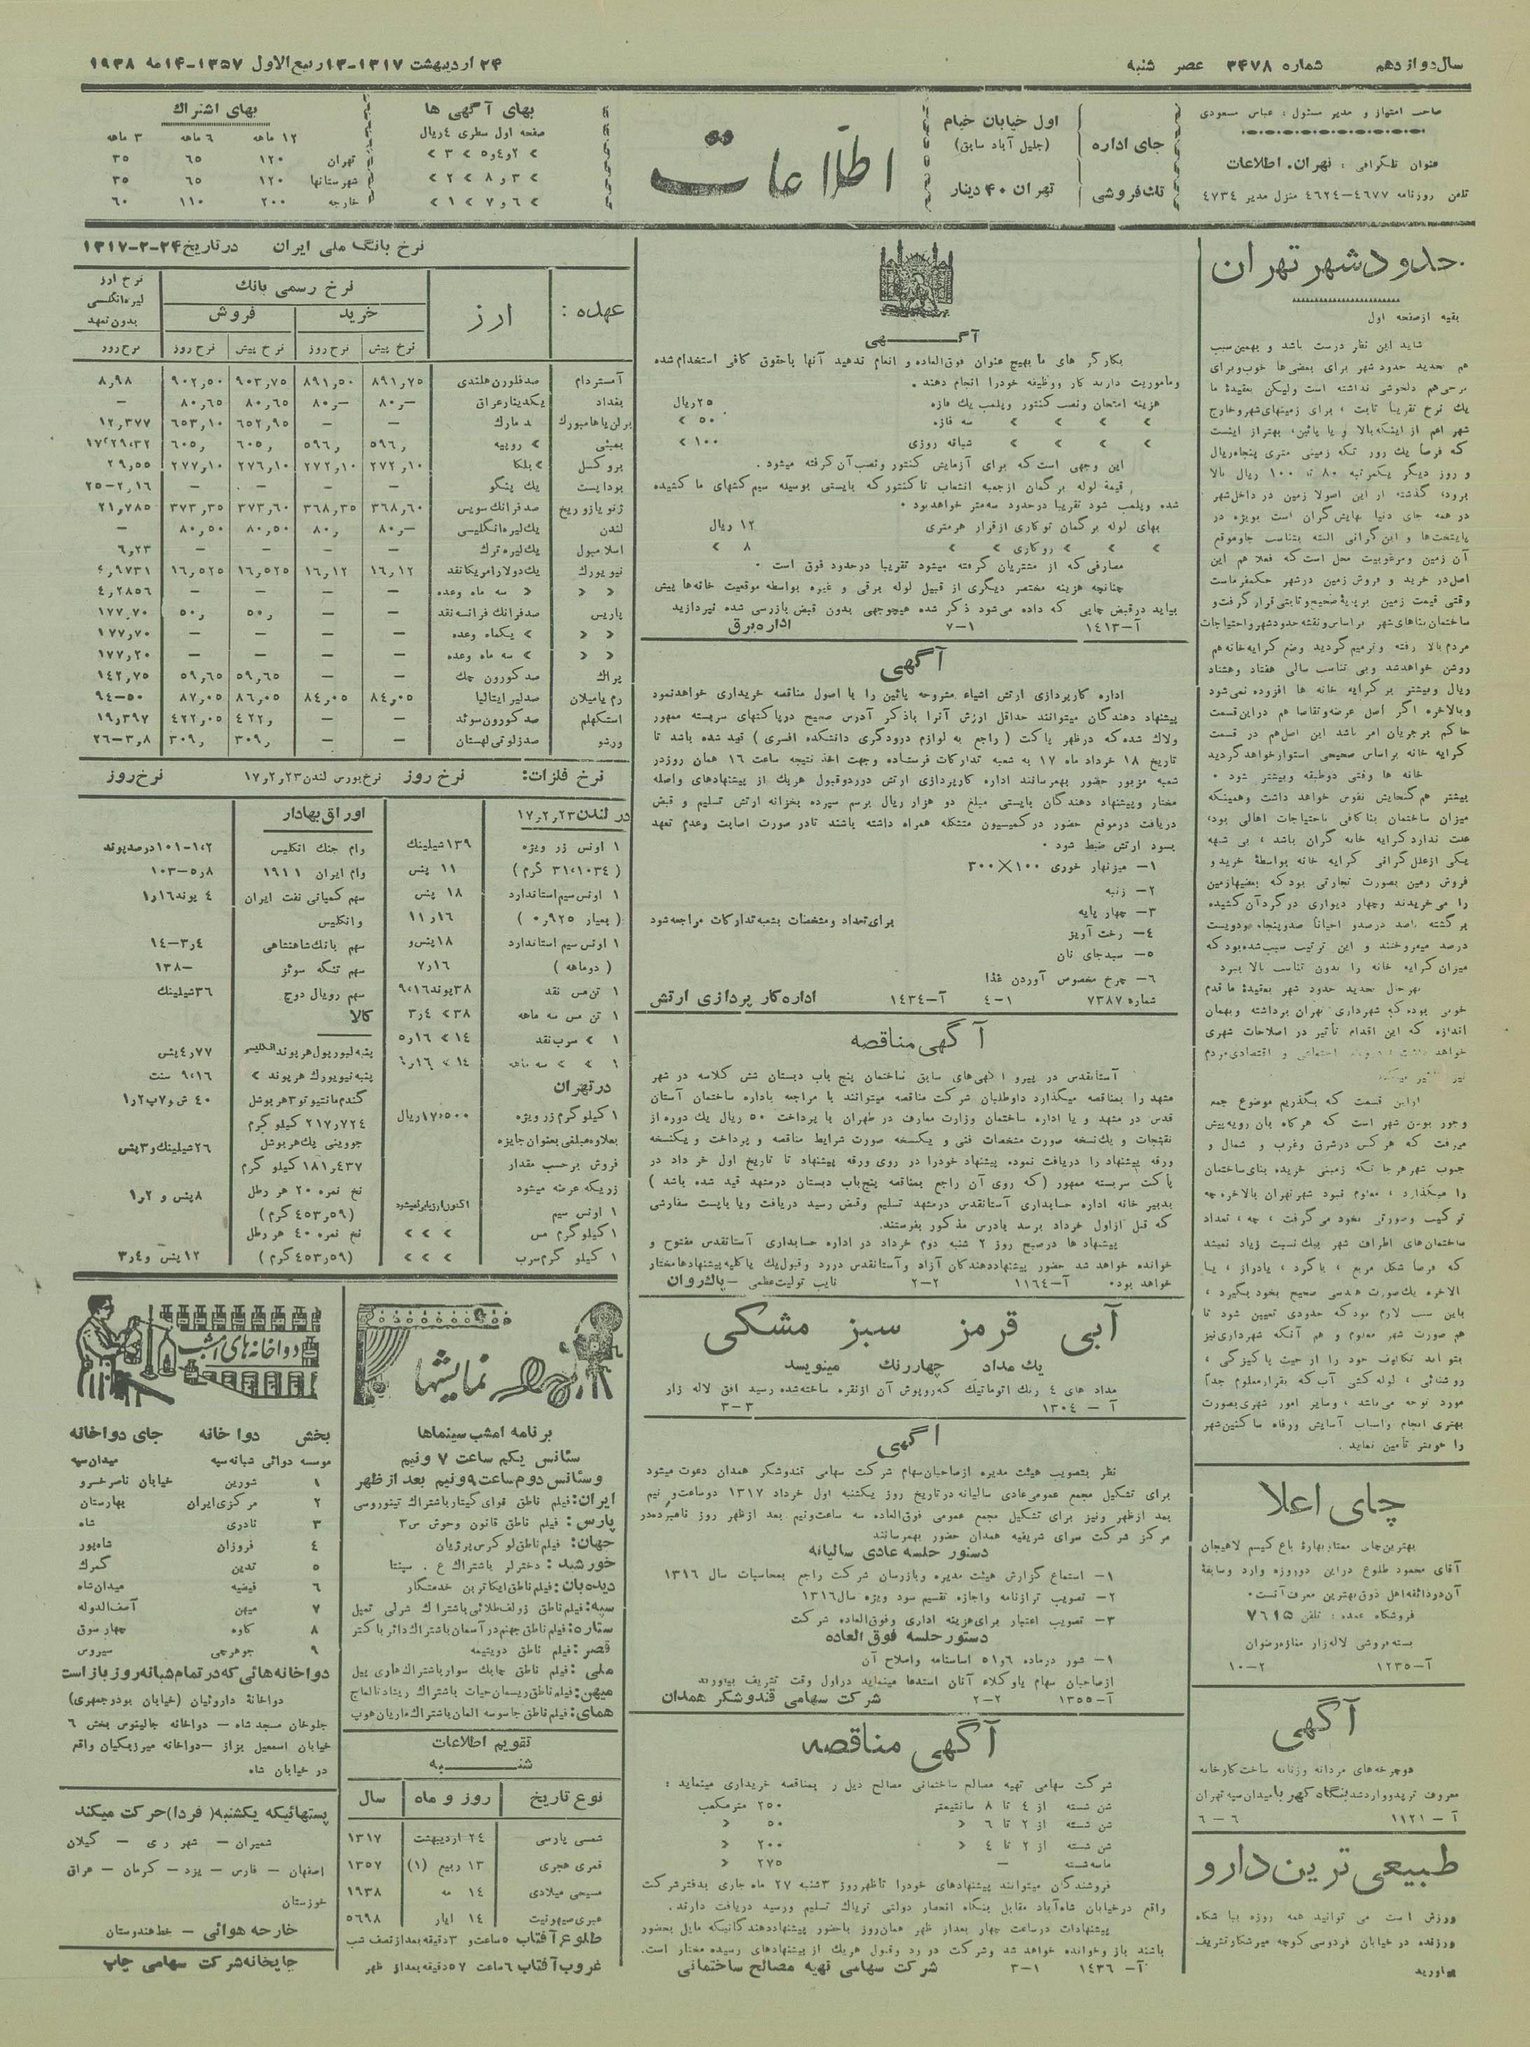 سال دوازدهم شماره ۳۴۷۸ عصر شنبه
۲۴ اردیبهشت ۱۳۱۷-۱۳ ربیع الاول ۱۳۵۷-۱۴ مه ۱۹۳۸
صاحب امتیاز و مدیر مسئول : عباس مسعودی
عنوان تلگرافی : تهران. اطلاعات
تلفن روزنامه ۴۶۷۷-۴۶۲۴ منزل مدیر ۴۷۳۴
جای اداره
اول خیابان خیام
(جلیل آباد سابق)
تک فروشی
تهران ۴۰ دینار
اطلاعات
بهای آگهی ها
صفحه اول سطری ۴ ریال
» ۲ و ۴ و ۵ » ۳ »
» ۳ و ۸ » ۲ »
» ۶ و ۷ » ۱ »
بهای اشتراك
۱۲ ماهه ۶ ماهه ۳ ماهه
تهران ۱۲۰ ۶۵ ۳۵
شهرستانها ۱۲۰ ۶۵ ۳۵
خارجه ۲۰۰ ۱۱۰ ۶۰
حدود شهر تهران
بقیه از صفحه اول
شاید این نظر درست باشد و بهمین سبب
هم تحدید حدود شهر برای بعضی ها خوب و برای
برخی هم دلخوشی نداشته است ولیکن بعقیدۀ ما
یك نرخ تقریبا ثابت ، برای زمینهای شهر و خارج
شهر اعم از اینکه بالا و یا پائین، بهتر از اینست
که فرضا یك روز تکه زمینی متری پنجاه ریال
و روز دیگر یکمرتبه ۸۰ تا ۱۰۰ ریال بالا
در همه جای دنیا بهایش گران است بویژه در
آن زمین و مرغوبیت محل است که فعلا هم این
اصل در خرید و فروش زمین در شهر حکمفرماست
وقتی قیمت زمین بر پایۀ صحیح و ثابتی قرار گرفت و
ساختمان بناهای شهر بر اساس و نقشه حدود شهر و احتیاجات
مردم بالا رفته و ترمیم گردید وضع کرایه خانه هم
روشن خواهد شد وبی تناسب سالی هفتاد وهشتاد
ریال وبیشتر بر کرایه خانه ها افزوده نمی شود
وبالاخره اگر اصل عرضه و تقاضا هم در این قسمت
حاکم بر جریان امر باشد این اصل هم در قسمت
کرایه خانه بر اساس صحیحی استوار خواهد گردید
خانه ها وقتی دو طبقه و بیشتر شود .
بیشتر هم گنجایش نفوس خواهد داشت و همینکه
میزان ساختمان بنا کافی باحتیاجات اهالی بود،
علت ندارد کرایه خانه گران باشد ، بی شبهه
یکی از علل گرانی کرایه خانه بواسطۀ خرید و
فروش زمین بصورت تجارتی بود که بعضیها زمین
را می خریدند و چهار دیواری در گرد آن کشیده
درصد میفروختند و این ترتیب سبب شده بود که
میزان کرایه خانه را بدون تناسب بالا ببرد
بهر حال تحدید حدود شهر بعقیدۀ ما قدم
خوبی بوده که شهرداری تهران برداشته و بهمان
اندازه که این اقدام تأثیر در اصلاحات شهری
هم صورت شهر معلوم و هم آنکه شهرداری نیز
بتواند تکالیف خود را از حیث پاکیزگی ،
روشنائی ، لوله کشی آب که بقرار معلوم جداً
مورد توجه می باشد ، وسایر امور شهری بصورت
بهتری انجام واسباب آسایش و رفاه ساکنین شهر
را خوبتر تأمین نماید .
چای اعلا
بهترین چای ممتاز بهارۀ باغ کیسم لاهیجان
آقای محمود طلوع در این دو روزه وارد وسابقۀ
فروشگاه عمده : تلفن ۷۶۱۵
بسته فروشی لاله زار مغازه رضوان
آ-۱۲۳۵ ۲-۱۰
آگهی
دوچرخه های مردانه وزنانه ساخت کارخانه
معروف تریدور وارد شد بنگاه گهر با میدان سپه تهران
آ-۱۱۲۱ ۶-۶
طبیعی ترین دارو
ورزش است می توانید همه روزه ببا شگاه
ورزنده در خیابان فردوسی کوچه میرشکار تشریف
بیاورید
آگهی
بکارگر های ما بهیچ عنوان فوق العاده و انعام ندهید آنها با حقوق کافی استخدام شده
وماموریت دارند کار ووظیفه خود را انجام دهند .
هزینه امتحان ونصب کنتور وپلمب یك فازه ۲۵ ریال
» » » » سه فازه ۵۰ »
» » » » شبانه روزی ۱۰۰ »
این وجهی است که برای آزمایش کنتور ونصب آن گرفته میشود .
قیمة لوله برگمان از جعبه انشعاب تا کنتور که بایستی بوسیله سیم کشهای ما کشیده
شده وپلمب شود تقریبا در حدود سه متر خواهد بود .
بهای لوله برگمان توکاری از قرار هر متری ۱۲ ریال
» » » روکاری » » ۸ »
مصارفی که از مشتریان گرفته میشود تقریبا در حدود فوق است .
چنانچه هزینه مختصر دیگری از قبیل لوله برقی و غیره بواسطه موقعیت خانه ها پیش
بیاید در قبض چاپی که داده می شود ذکر شده هیچوجهی بدون قبض بازرسی شده نپردازید
آ-۱۴۱۳ ۱-۷ اداره برق
آگهی
اداره کارپردازی ارتش اشیاء مشروحه پائین را با اصول مناقصه خریداری خواهد نمود
پیشنهاد دهندگان میتوانند حداقل ارزش آنرا با ذکر آدرس صحیح در پاکتهای سربسته ممهور
ولاك شده که در ظهر پاکت ( راجع به لوازم درودگری دانشکده افسری ) قید شده باشد تا
تاریخ ۱۸ خرداد ماه ۱۷ به شعبه تدارکات فرستاده وجهت اخذ نتیجه ساعت ۱۶ همان روز در
شعبه مزبور حضور بهمرسانند اداره کارپردازی ارتش در رد و قبول هریك از پیشنهادهای واصله
مختار و پیشنهاد دهندگان بایستی مبلغ دو هزار ریال برسم سپرده بخزانه ارتش تسلیم و قبض
دریافت در موقع حضور در کمیسیون متشکله همراه داشته باشند تا در صورت اصابت وعدم تعهد
بسود ارتش ضبط شود .
۱- میز نهار خوری ۱۰۰×۳۰۰
۲- زنبه
۳- چهار پایه
۴- رخت آویز
۵- سبد جای نان
۶- چرخ مخصوص آوردن غذا
برای تعداد و مشخصات بشعبه تدارکات مراجعه شود
شماره ۷۳۸۷ ۱-۴ آ-۱۴۳۴ اداره کار پردازی ارتش
آگهی مناقصه
آستانقدس در پیرو آگهی های سابق ساختمان پنج باب دبستان شش کلاسه در شهر
مشهد را بمناقصه میگذارد داوطلبان شرکت مناقصه میتوانند با مراجعه باداره ساختمان آستان
قدس در مشهد و یا اداره ساختمان وزارت معارف در طهران با پرداخت ۵۰ ریال یك دوره از
نقشجات و یك نسخه صورت مشخصات فنی و یکنسخه صورت شرایط مناقصه و پرداخت و یکنسخه
ورقه پیشنهاد را دریافت نموده پیشنهاد خود را در روی ورقه پیشنهاد تا تاریخ اول خرداد در
پاکت سربسته ممهور (که روی آن راجع بمناقصه پنج باب دبستان در مشهد قید شده باشد )
بدبیر خانه اداره حسابداری آستانقدس در مشهد تسلیم وقبض رسید دریافت ویا با پست سفارشی
که قبل از اول خرداد برسد بآدرس مذکور بفرستند.
پیشنهاد ها در صبح روز ۲ شنبه دوم خرداد در اداره حسابداری آستانقدس مفتوح و
خوانده خواهد شد حضور پیشنهاد دهندگان آزاد و آستانقدس در رد و قبول یك یا کلیه پیشنهادها مختار
خواهد بود. آ-۱۱۶۴ ۲-۲ نایب تولیت عظمی - پاك روان
آبی قرمز سبز مشکی
یك مداد چهار رنك مینویسد
مداد های ۴ رنك اتوماتیك که روپوش آن از نقره ساخته شده رسید افق لاله زار
آ-۱۳۰۴ ۳-۳
آگهی
نظر بتصویب هیئت مدیره از صاحبان سهام شرکت سهامی قندوشکر همدان دعوت میشود
برای تشکیل مجمع عمومی عادی سالیانه در تاریخ روز یکشنبه اول خرداد ۱۳۱۷ دو ساعت و نیم
بعد از ظهر ونیز برای تشکیل مجمع عمومی فوق العاده سه ساعت ونیم بعد از ظهر روز نامبرده در
مرکز شرکت سرای شریفیه همدان حضور بهمرسانند
دستور جلسه عادی سالیانه
۱- استماع گزارش هیئت مدیره وبازرسان شرکت راجع بمحاسبات سال ۱۳۱۶
۲- تصویب ترازنامه واجازه تقسیم سود ویژه سال ۱۳۱۶
۳- تصویب اعتبار برای هزینه اداری وفوق العاده شرکت
دستور جلسه فوق العاده
۱- شور در ماده ۶ و ۵۱ اساسنامه واصلاح آن
از صاحبان سهام یا وکلاء آنان استدعا مینماید در اول وقت تشریف بیاورند
آ-۱۳۵۵ ۲-۲ شرکت سهامی قندوشکر همدان
آگهی مناقصه
شرکت سهامی تهیه مصالح ساختمانی مصالح ذیل را بمناقصه خریداری مینماید :
شن شسته از ۴ تا ۸ سانتیمتر ۲۵۰ متر مکعب
شن شسته از ۲ تا ۶ » ۵۰ »
شن شسته از ۲ تا ۴ » ۲۰۰ »
ماسه شسته - ۲۷۵ »
فروشندگان میتوانند پیشنهادهای خود را تا ظهر روز ۳ شنبه ۲۷ ماه جاری بدفتر شرکت
واقع در خیابان شاه آباد مقابل بنگاه انحصار دولتی تریاك تسلیم ورسید دریافت دارند.
پیشنهادات در ساعت چهار بعد از ظهر همان روز با حضور پیشنهاد دهندگانیکه مایل بحضور
باشند باز و خوانده خواهد شد و شرکت در رد و قبول هریك از پیشنهادهای رسیده مختار است.
آ-۱۴۳۶ ۱-۳ شرکت سهامی تهیه مصالح ساختمانی
نرخ بانك ملی ایران در تاریخ ۲۴-۲-۱۳۱۷
عهده : ارز نرخ رسمی بانك نرخ ارز لیره انگلسی بدون تعهد
خرید فروش
نرخ پیش نرخ روز نرخ پیش نرخ روز نرخ روز
آمستردام صد فلورن هلندی ۸۹۱٫۷۵ ۸۹۱٫۵۰ ۹۰۳٫۷۵ ۹۰۲٫۵۰ ۸٫۹۸
بغداد یکدینار عراق ۸۰٫- ۸۰٫- ۸۰٫۶۵ ۸۰٫۶۵ -
برلن یا هامبورك صد مارك - - ۶۵۲٫۹۵ ۶۵۳٫۱۰ ۱۲٫۳۷۷
بمبئی » روپیه ۵۹۶٫ ۵۹۶٫ ۶۰۵٫ ۶۰۵٫
بروکسل » بلگا ۲۷۲٫۱۰ ۲۷۲٫۱۰ ۲۷۶٫۱۰ ۲۷۷٫۱۰ ۲۹٫۵۵
بوداپست یك پنگو - - - - ۲۵-۲٫۱۶
ژنو یا زوریخ صد فرانك سویس ۳۶۸٫۶۰ ۳۶۸٫۳۵ ۳۷۳٫۶۰ ۳۷۳٫۳۵ ۲۱٫۷۸۵
لندن یك لیره انگلیسی ۸۰٫- ۸۰٫ ۸۰٫۵۰ ۸۰٫۵۰ -
اسلامبول یك لیره ترك - - - - ۶٫۲۳
نیویورك یك دولار امریکا نقد ۱۶٫۱۲ ۱۶٫۱۲ ۱۶٫۵۲۵ ۱۶٫۵۲۵ ۴٫۹۷۳۱
» » » سه ماه وعده - - - - ۴٫۲۸۵۶
پاریس صد فرانك فرانسه نقد - - ۵۰٫ ۵۰٫ ۱۷۷٫۷۰
» » » یکماه وعده - - - - ۱۷۷٫۷۰
» » » سه ماه وعده - - - - ۱۷۷٫۲۰
پراك صد کورون چك - - ۵۹٫۶۵ ۵۹٫۶۵ ۱۴۲٫۷۵
رم یا میلان صد لیر ایتالیا ۸۴٫۰۵ ۸۴٫۰۵ ۸۶٫۰۵ ۸۷٫۰۵ ۹۴-۵۰
استکهلم صد کورون سوئد - - ۴۲۲٫ ۴۲۲٫۰۵ ۱۹٫۳۹۷
ورشو صد زلوتی لهستان - - ۳۰۹٫ ۳۰۹٫ ۲۶-۳٫۸
نرخ فلزات: نرخ روز نرخ بورس لندن ۱۷٫۲٫۲۳ نرخ روز
در لندن ۱۷٫۲٫۲۳
۱ اونس زر ویژه ۱۳۹ شیلینك
( ۳۱٫۱۰۳۴ گرم ) ۱۱ پنس
۱ اونس سیم استاندارد ۱۸ پنس
( بعیار ۰٫۹۲۵ ) ۱۱٫۱۶
۱ اونس سیم استاندارد ۱۸ پنس و
( دوماهه ) ۷٫۱۶
۱ تن مس نقد ۳۸ پوند ۹٫۱۶
۱ تن مس سه ماهه ۳۸ » ۳٫۴
۱ » سرب نقد ۱۴ » ۵٫۱۶
۱ » » سه ماهه
در تهران
۱ کیلو گرم زر ویژه ۱۷٫۵۰۰ ریال
بعلاوه مبلغی بعنوان جایزه
فروش بر حسب مقدار
زریکه عرضه میشود
۱ اونس سیم اکنون ارزیابی نمیشود
۱ کیلو گرم مس » » »
۱ کیلو گرم سرب » » »
اوراق بهادار
وام جنك انگلیس ۱۰۱-۱٫۲ درصد پوند
وام ایران ۱۹۱۱ ۱۰۳-۵٫۸
سهم کمپانی نفت ایران وانگلیس ۴ پوند ۱٫۱۶
سهم بانك شاهنشاهی ۱۴-۳٫۴
سهم تنگه سوئز ۱۳۸-
سهم رویال دوچ ۳۶ شیلینك
کالا
پنبه لیورپول هر پوند انگلیسی ۴٫۷۷ پنس
پنبه نیویورك هر پوند » ۹٫۱۶ سنت
گندم مانیتوبا ۳ هر بوشل
۲۱۷٫۷۲۴ کیلو گرم
جو وینی پك هر بوشل ۲۶ شیلینك و ۳ پنس
۱۸۱٫۴۳۷ کیلو گرم
نخ نمره ۲۰ هر رطل ۸ پنس و ۱٫۲
(۴۵۳٫۵۹ گرم)
نخ نمره ۴۰ هر رطل ۱۲ پنس و ۳٫۴
(۴۵۳٫۵۹ گرم)
نمایشها
برنامه امشب سینماها
سئانس یکم ساعت ۷ ونیم
وسئانس دوم ساعت ۹ ونیم بعد از ظهر
ایران: فیلم ناطق قوای گیتار باشتراك تینوروسی
پارس: فیلم ناطق قانون وحوش س ۳
جهان: فیلم ناطق لوکرس برژیان
خورشید: دختر لر باشتراك ع . سپنتا
دیده بان: فیلم ناطق ایکاترین خدمتگار
سپه: فیلم ناطق زولف طلائی باشتراك شرلی تمپل
ستاره: فیلم ناطق جهنم در آسمان باشتراك وارنر باکستر
قصر: فیلم ناطق دویتیمه
ملی: فیلم ناطق چابك سوار باشتراك هاری پیل
میهن: فیلم ناطق ریسمان حیات باشتراك ریشارد تالماج
همای: فیلم ناطق جاسوسه المان باشتراك ماریان هوپ
تقویم اطلاعات
شنبه
نوع تاریخ روز و ماه سال
شمسی پارسی ۲۴ اردیبهشت ۱۳۱۷
قمری هجری ۱۳ ربیع (۱) ۱۳۵۷
مسیحی میلادی ۱۴ مه ۱۹۳۸
عبری صیهونیت ۱۴ ایار ۵۶۹۸
طلوع آفتاب ۵ ساعت و ۳ دقیقه بعد از نصف شب
غروب آفتاب ۶ ساعت ۵۷ دقیقه بعد از ظهر
دواخانه های امشب
بخش دواخانه جای دواخانه
موسسه دوائی شبانه سپه میدان سپه
۱ شورین خیابان ناصر خسرو
۲ مرکزی ایران بهارستان
۳ نادری شاه
۴ فروزان شاه پور
۵ تدین گمرك
۶ فیضیه میدان شاه
۷ میهن آصف الدوله
۸ کاوه چهار سوق
۹ جوهرچی سیروس
دواخانه هائی که در تمام شبانه روز باز است
دواخانۀ داروئیان (خیابان بوذرجمهری)
جلوخان مسجد شاه - دواخانه جالینوس بخش ۶
خیابان اسمعیل بزاز - دواخانه میرزیکیان واقع
در خیابان شاه
پستهائیکه یکشنبه (فردا) حرکت میکند
شمیران - شهر ری - گیلان
اصفهان - فارس - یزد - کرمان - عراق
خوزستان
خارجه هوائی - خط هندوستان
چاپخانه شرکت سهامی چاپ